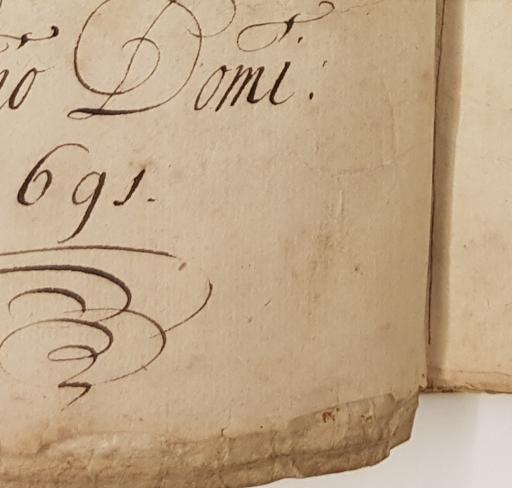 ño Domi:
691.